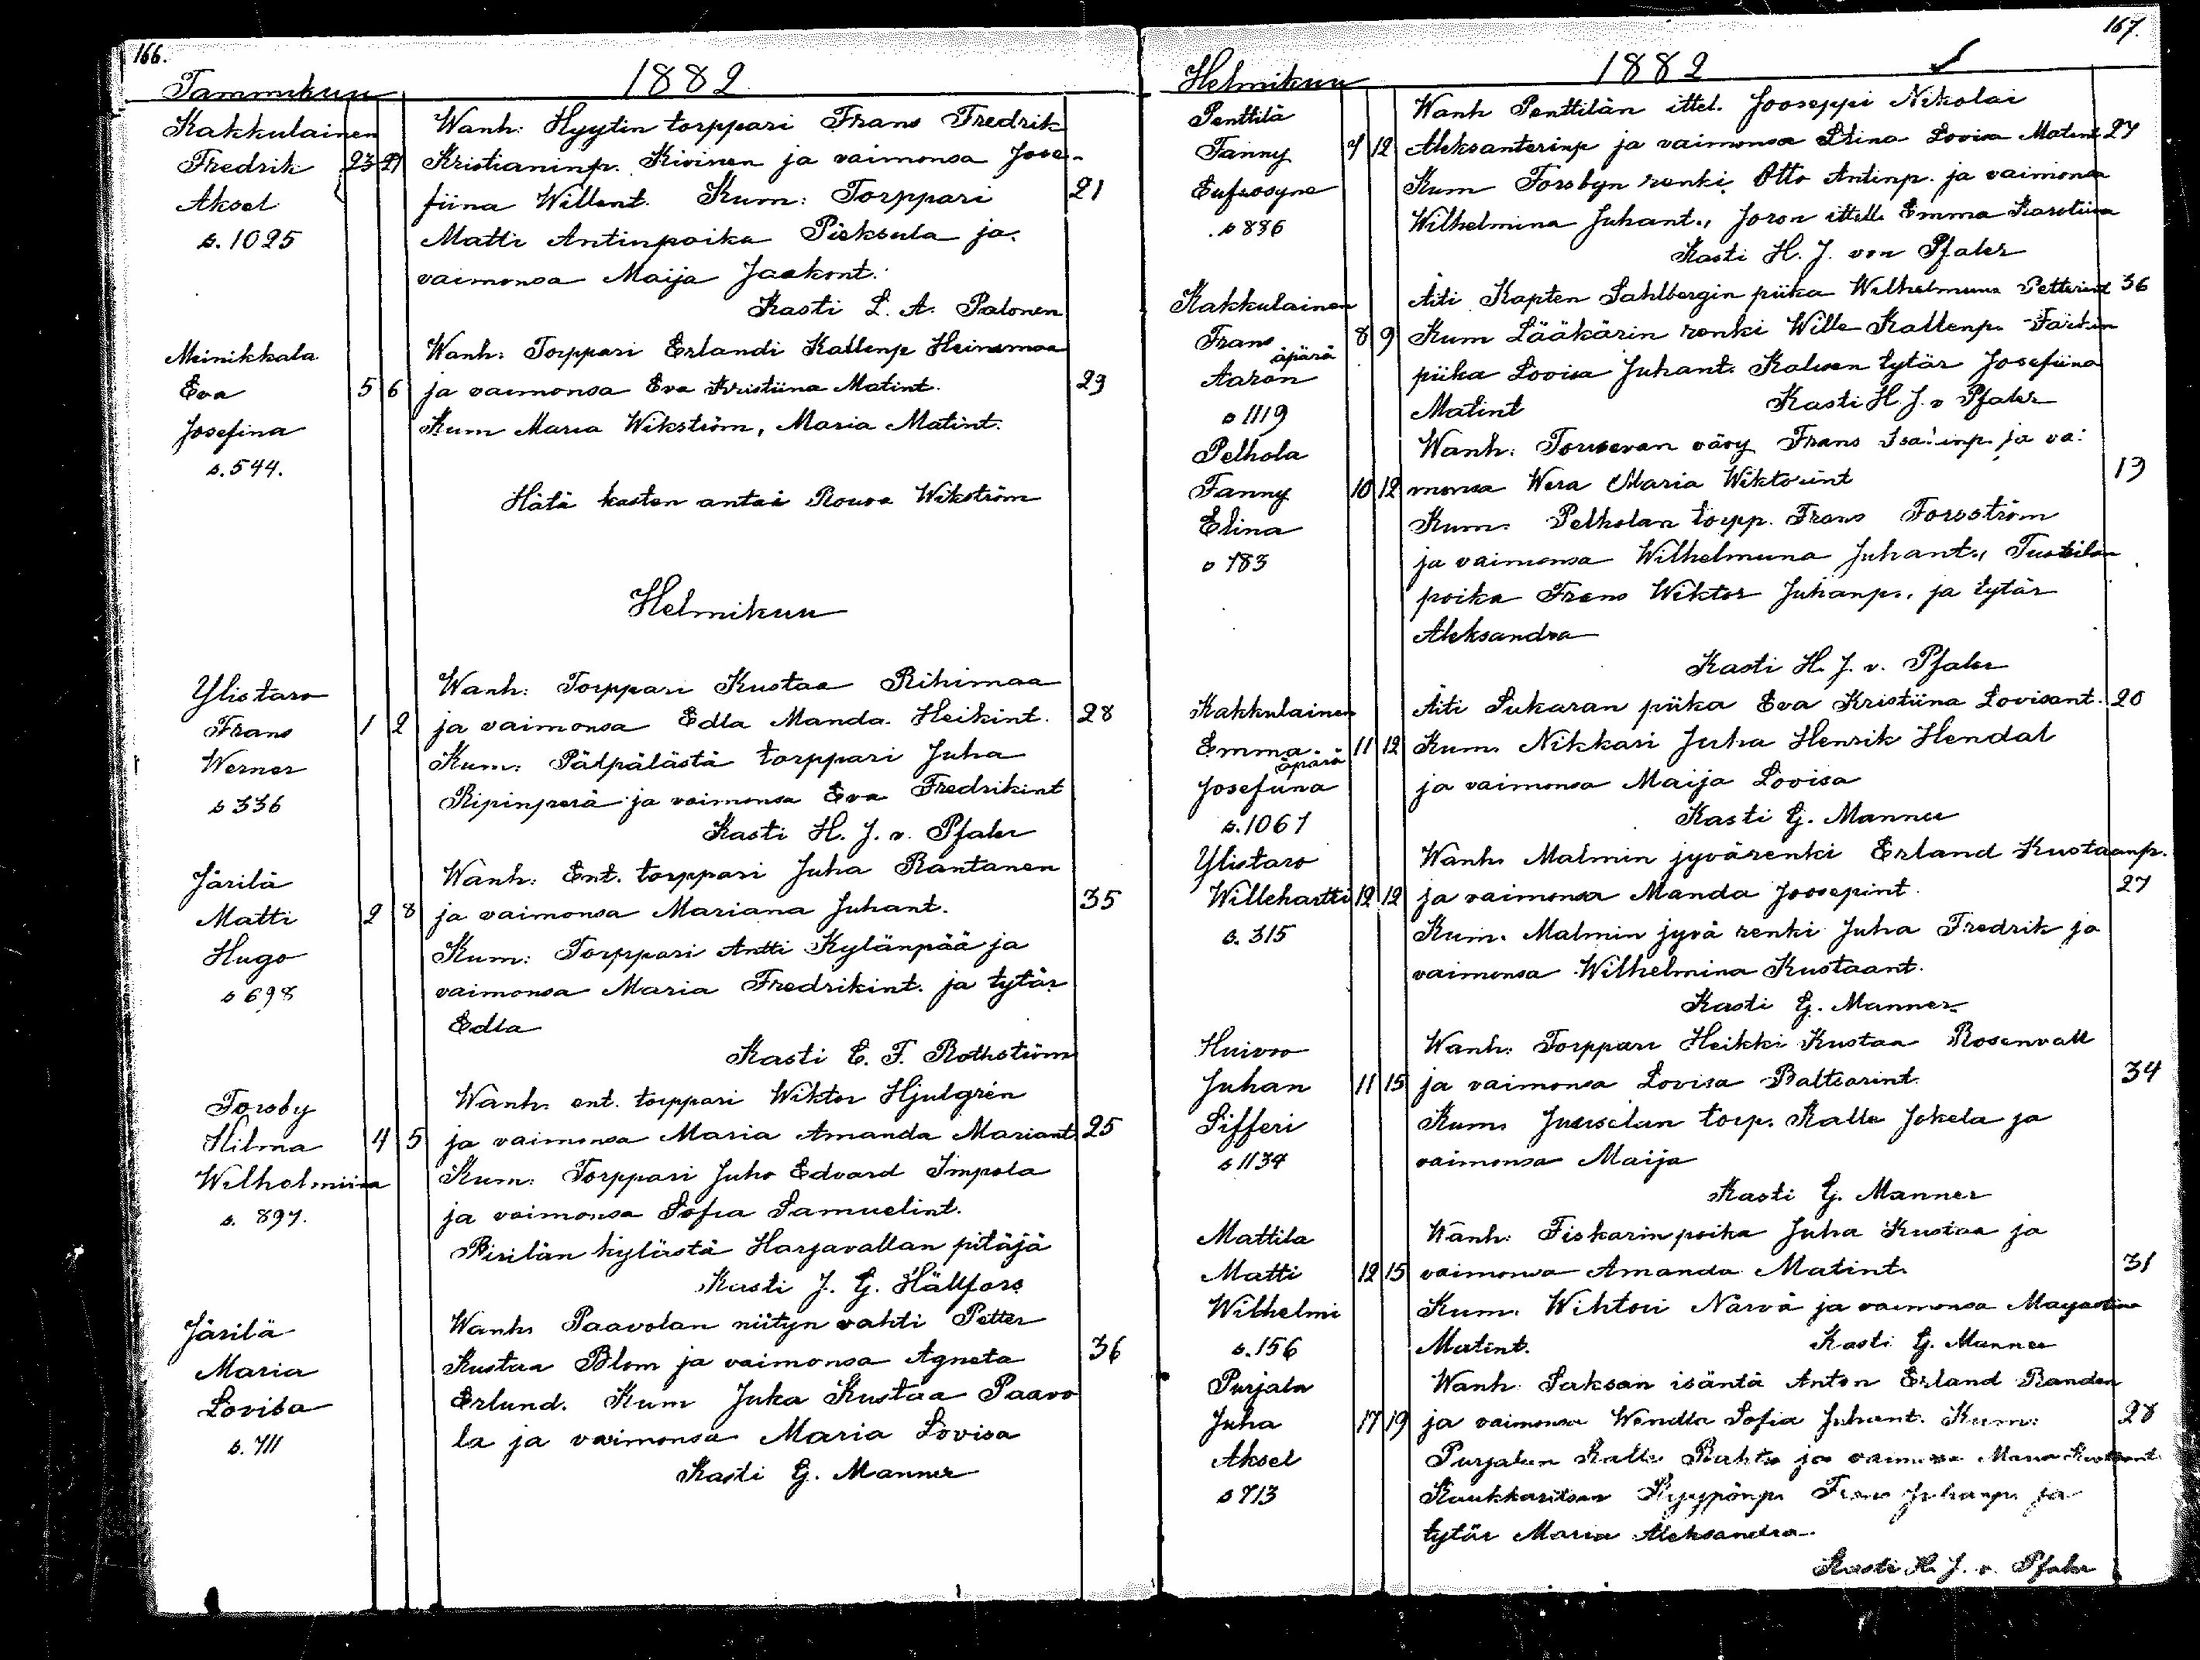 166.
Tammikuu 1882
Kakkulainen Wanh: Hyytin torppari Frans Fredrik
Fredrik 23 27 Kristianinp. Kivinen ja vaimonsa Jose-
Aksel fiina Willent. Kum: Torppari 21
s. 1025 Matti Antinpoika Pieksula ja
vaimonsa Maija Jaakont.
Kasti L. A. Palonen
Meinikkala Wanh: Torppari Erlandi Kallenp Heinamaa
Eva 5 6 ja vaimonsa Eva Kristiina Matint. 29
Josefina Kum Maria Wikström, Maria Matint.
s. 544.
Hätä kasten antoi Rouva Wikström
Helmikuu
Ylistaro Wanh: Torppari Kustaa Rihimaa
Frans 1 2 ja vaimonsa Edla Manda Heikint. 28
Werner Kum: Pälpälästä torppari Juha
s 336 Ripinperä ja vaimonsa Eva Fredrikint
Kasti H. J. v. Pfaler
Järilä Wanh: Ent. torppari Juha Rantanen
Matti 2 8 ja vaimonsa Mariana Juhant. 35
Hugo Kum: Torppari Antti Kylänpää ja
s 698 vaimonsa Maria Fredrikint. ja tytär
Edla
Kasti E. F. Rothström
Forsby Wanh. ent. torppari Wiktor Hjulgrén
Hilma 4 5 ja vaimonsa Maria Amanda Mariant 25
Wilhelmiina Kum: Torppari Juho Edvard Impola
s. 897. ja vaimonsa Sofia Samuelint.
Pirilän kylästä Harjavallan pitäjä
Kasti J. G. Hällfors
Järilä Wanh. Paavolan niityn vahti Petter
Maria Kustaa Blom ja vaimonsa Agneta 36
Lovisa Erlund. Kum Juka Kustaa Paavo
s. 711 la ja vaimonsa Maria Lovisa
Kasti G. Manner
167.
Helmikuu 1882
Penttilä Wanh Penttilän ittel. Jooseppi Nikolai
Fanny 7 12 Aleksanterinp ja vaimonsa Stina Lovisa Matint 27
Eufrosyne Kum Forsbyn renki Otto Antinp. ja vaimonsa
s 886 Wilhelmina Juhant., Joron ittell. Emma Karotiina
Kasti H. J. von Pfaler
Kakkulainen Äiti Kapten Sahlbergin piika Wilhelmina Petterint 36
Frans 8 9 Kum Lääkärin renki Wille Kallenp.
äpärä
Aaron piika Lovisa Juhant. tytär Josefiina
s 1119 Matint Kasti H. J. v Pfaler
Pelhola Wanh: vävy Frans ja vai
Fanny 10 12 monsa Wera Maria Wiktorint 19
Elina Kum. Pelholan torpp. Frans Forsström
s 783 ja vaimonsa Wilhelmuna Juhant.,
poika Frans Wiktor Juhanp., ja tytär
Aleksandra
Kasti H. J. v. Pfaler
Kakkulainen Äiti Sukaran piika Eva Kristiina Lovisant. 20
Emma 11 12 Kum. Nikkari Juha Henrik Hendal
äpärä
Josefiina ja vaimonsa Maija Lovisa
s. 1067 Kasti G. Manner
Ylistaro Wanh. Malmin jyvärenki Erland Kustaanp.
Willehartti 12 12 ja vaimonsa Manda Joosepint. 27
s. 315 Kum. Malmin jyvä renki Juha Fredrik ja
vaimonsa Wilhelmina Kustaant.
Kasti G. Manner
Huivoo Wanh: Torppari Heikki Kustaa Rosenvall
Juhan 11 15 ja vaimonsa Lovisa Baltsarint. 34
Sifferi Kum. torp. Kalle Jokela ja
s 1134 vaimonsa Maija
Kasti G. Manner
Mattila Wanh: Fiskarin poika Juha Kustaa ja
Matti 12 15 vaimonsa Amanda Matint. 31
Wilhelmi Kum. Wihtori Närvä ja vaimonsa
s. 156 Matint. Kasti G. Manner
Purjala Wanh. Saksan isäntä Anton Erland Randen
Juha 17 19 ja vaimonsa Wendla Sofia Juhant. Kum: 28
Aksel Purjalan Kalle ja vaimonsa Maria
s 713 Frans Juhanp. ja
tytär Maria Aleksandra.
Kasti H. J. v. Pfaler